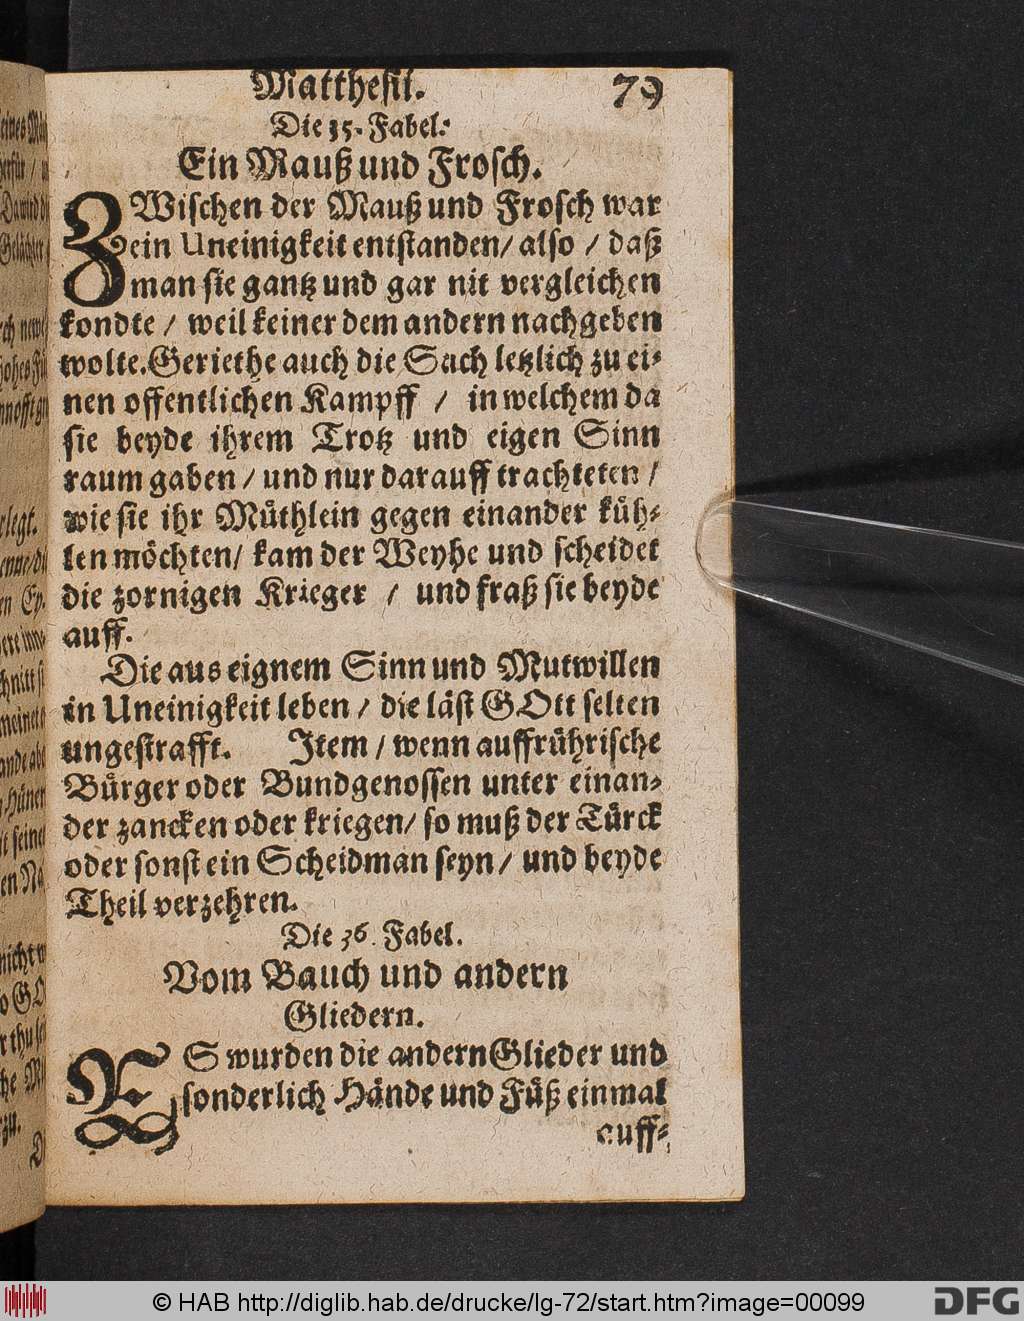 Matthesii. 79
Die 35. Fabel.
Ein Mauß und Frosch.
ZWischen der Mauß und Frosch war
ein Uneinigkeit entstanden/ also / daß
man sie gantz und gar nit vergleichen
kondte / weil keiner dem andern nachgeben
wolte. Geriethe auch die Sach letzlich zu ei-
nen offentlichen Kampff / in welchem da
sie beyde ihrem Trotz und eigen Sinn
raum gaben / und nur darauff trachteten /
wie sie ihr Müthlein gegen einander küh-
len möchten/ kam der Weyhe und scheidet
die zornigen Krieger / und fraß sie beyde
auff.
Die aus eignem Sinn und Mutwillen
in Uneinigkeit leben / die läst GOtt selten
ungestrafft. Item / wenn auffrührische
Bürger oder Bundgenossen unter einan-
der zancken oder kriegen/ so muß der Türck
oder sonst ein Scheidman seyn / und beyde
Theil verzehren.
Die 36. Fabel.
Vom Bauch und andern
Gliedern.
ES wurden die andern Glieder und
sonderlich Hände und Füß einmal
auff-
© HAB http://diglib.hab.de/drucke/lg-72/start.htm?image=00099
DFG